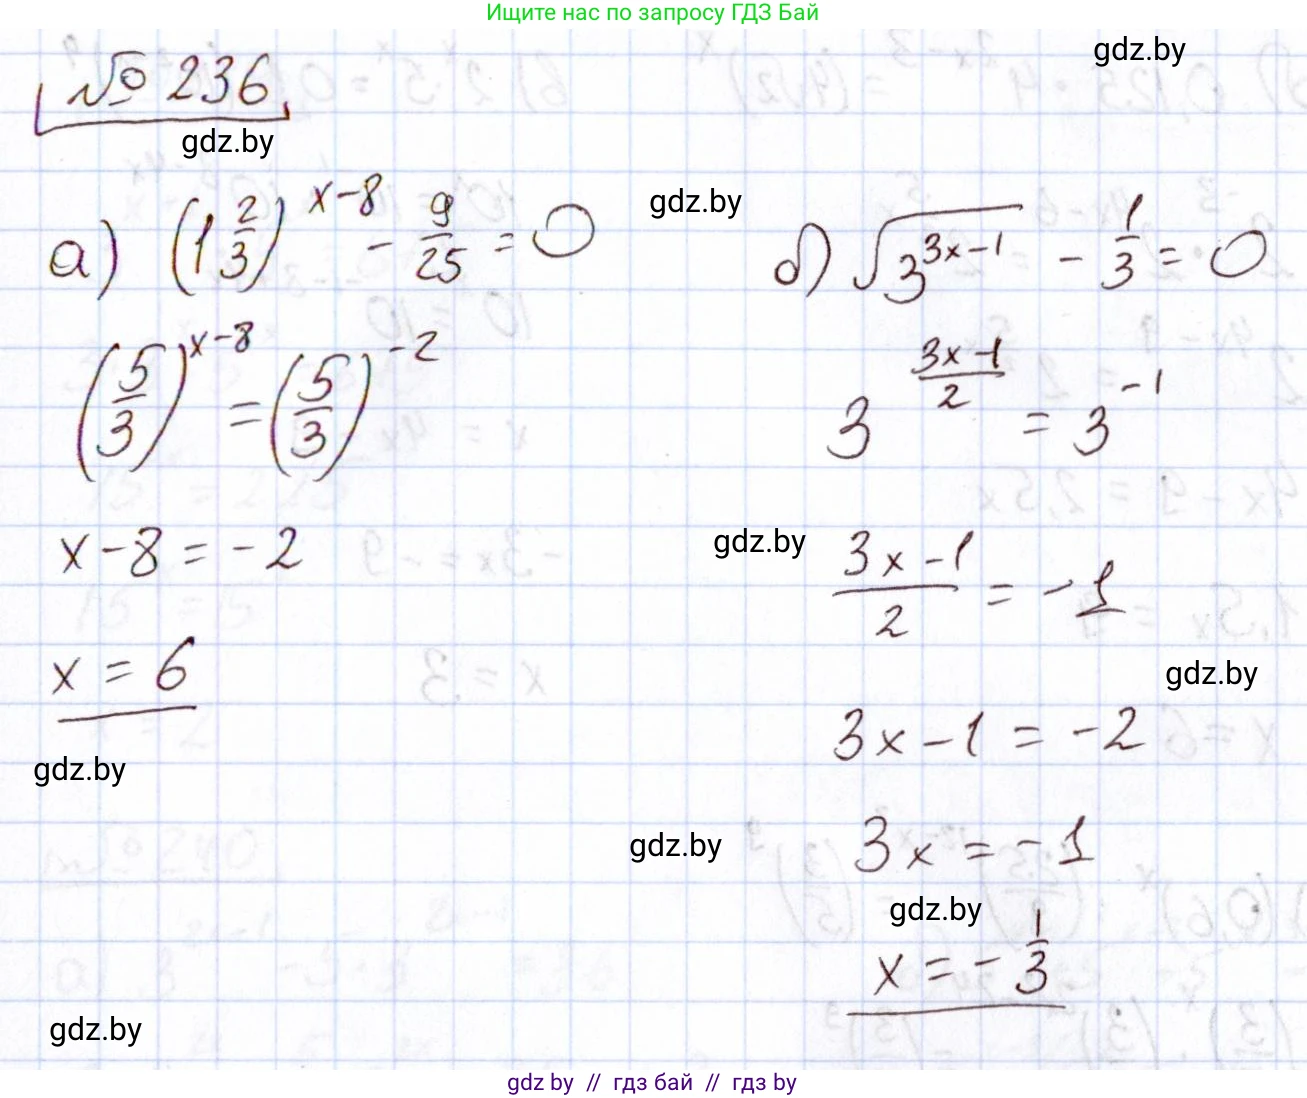 Ищите нас по запросу ГДЗ Бай
gdz.by
№ 236
gdz.by
а) (1 2/3)^(x-8) - 9/25 = 0
(5/3)^(x-8) = (5/3)^(-2)
x - 8 = -2
x = 6
gdz.by
gdz.by
gdz.by
б) √(3^(3x-1)) - 1/3 = 0
3^((3x-1)/2) = 3^(-1)
gdz.by
(3x-1)/2 = -1
gdz.by
3x - 1 = -2
gdz.by
3x = -1
gdz.by
x = -1/3
gdz by // гдз бай // гдз by